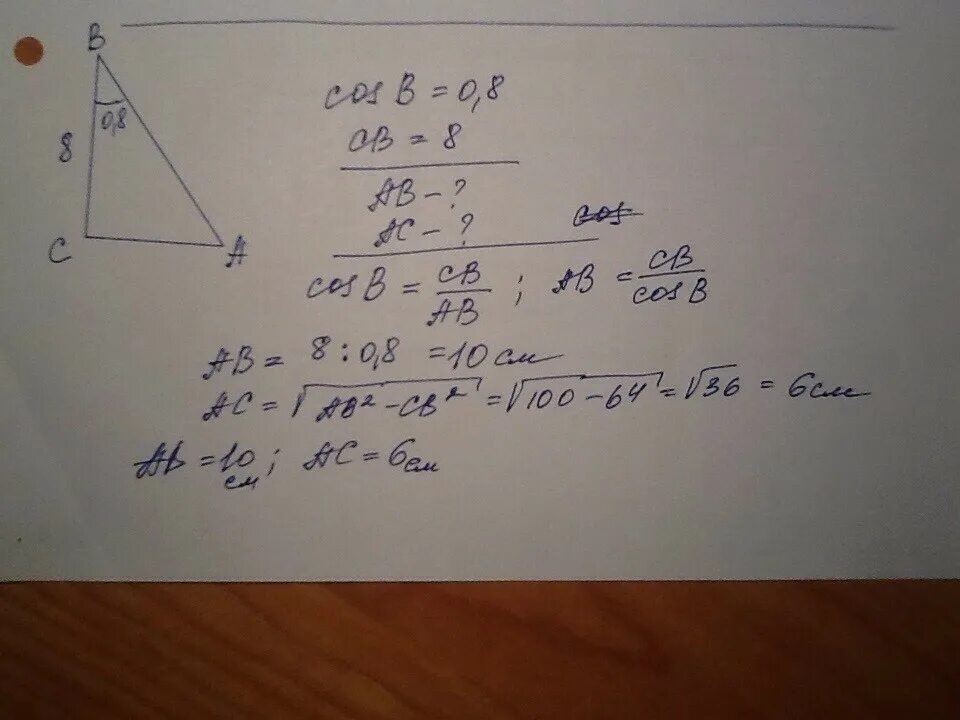 B
0,8
8
C
A
cos B = 0,8
CB = 8
AB - ?
AC - ?
cos
cos B = CB/AB ; AB = CB/cos B
AB = 8 : 0,8 = 10 см
AC = √AB² - CB² = √100 - 64 = √36 = 6 см
AB = 10 см ; AC = 6 см